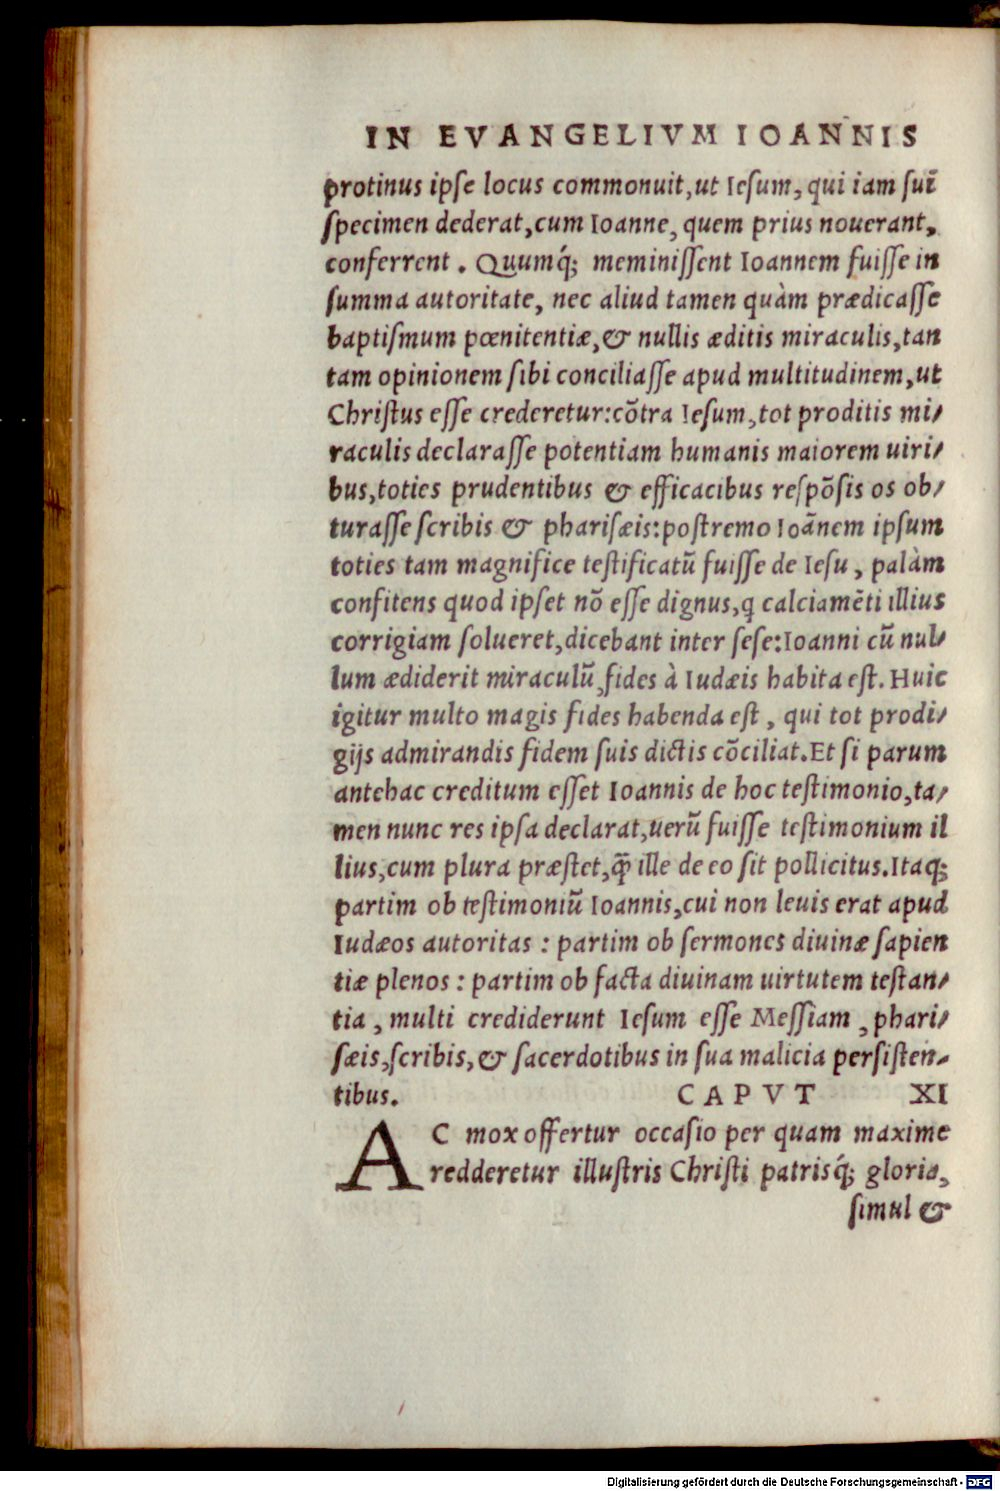 IN EVANGELIVM IOANNIS
protinus ipſe locus commonuit,ut Ieſum, qui iam ſuĩ
ſpecimen dederat,cum Ioanne, quem prius nouerant,
conferrent . Quumq́; meminiſſent Ioannem fuiſſe in
ſumma autoritate, nec aliud tamen quàm prædicaſſe
baptiſmum pœnitentiæ,& nullis æditis miraculis,tan
tam opinionem ſibi conciliaſſe apud multitudinem,ut
Chriſtus eſſe crederetur:cõtra Ieſum,tot proditis mi/
raculis declaraſſe potentiam humanis maiorem uiri/
bus,toties prudentibus & efficacibus reſpõſis os ob/
turaſſe ſcribis & phariſæis:poſtremo Ioãnem ipſum
toties tam magnifice teſtificatũ fuiſſe de Ieſu, palàm
confitens quod ipſet nõ eſſe dignus,q calciamẽti illius
corrigiam ſolueret,dicebant inter ſeſe:Ioanni cũ nul/
lum ædiderit miraculũ,fides à Iudæis habita eſt. Huic
igitur multo magis fides habenda eſt, qui tot prodi/
gijs admirandis fidem ſuis dictis cõciliat.Et ſi parum
antehac creditum eſſet Ioannis de hoc teſtimonio,ta/
men nunc res ipſa declarat,uerũ fuiſſe teſtimonium il
lius,cum plura præſtet,q̃ ille de eo ſit pollicitus.Itaq;
partim ob teſtimoniũ Ioannis,cui non leuis erat apud
Iudæos autoritas : partim ob ſermones diuinæ ſapien
tiæ plenos : partim ob facta diuinam uirtutem teſtan/
tia, multi crediderunt Ieſum eſſe Meſſiam, phari/
ſæis,ſcribis,& ſacerdotibus in ſua malicia perſiſten/
tibus. CAPVT XI
AC mox offertur occaſio per quam maxime
redderetur illuſtris Chriſti patrisq́; gloria,
ſimul &
Digitalisierung gefördert durch die Deutsche Forschungsgemeinschaft - DFG